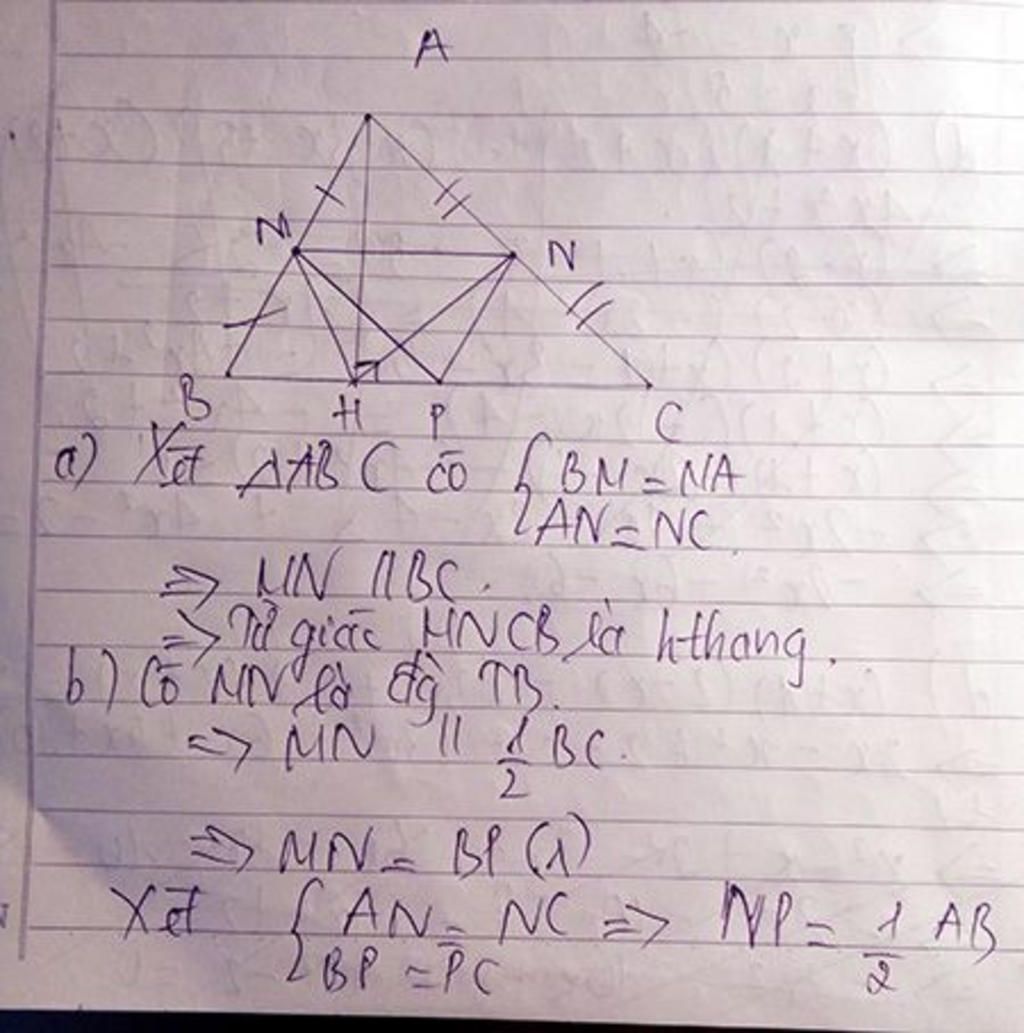 A
M
N
B H P C
a) Xét ΔABC có { BM = MA
AN = NC.
=> MN // BC.
=> Tứ giác MNCB là hthang.
b) Có MN là đg TB.
=> MN // 1/2 BC.
=> MN = BP (1)
Xét { AN = NC => NP = 1/2 AB
BP = PC